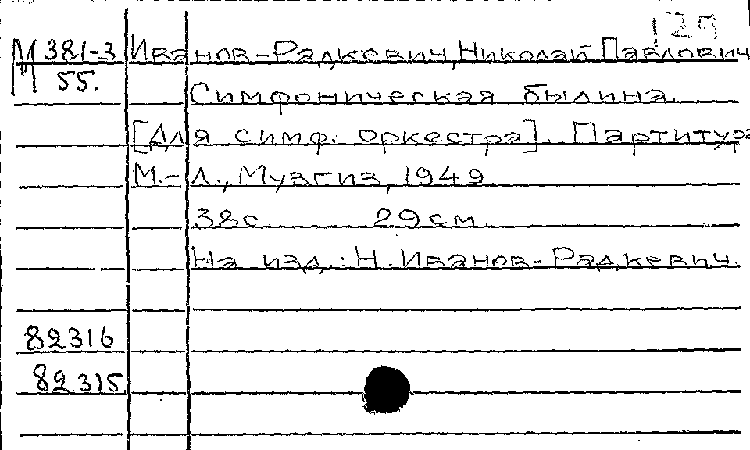 129
М 381-3 Иванов-Радкевич, Николай Павлович
М 55. Симфоническая былина.
[Для симф. оркестра]. Партитура
М.-Л., Музгиз, 1949
38с. 29см.
На изд.: Н. Иванов-Радкевич.
82316
82315